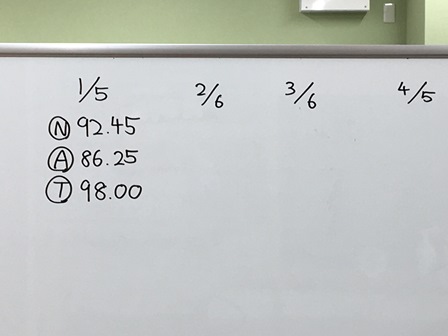 1/5 2/6 3/6 4/5
Ⓝ 92.45
Ⓐ 86.25
Ⓣ 98.00